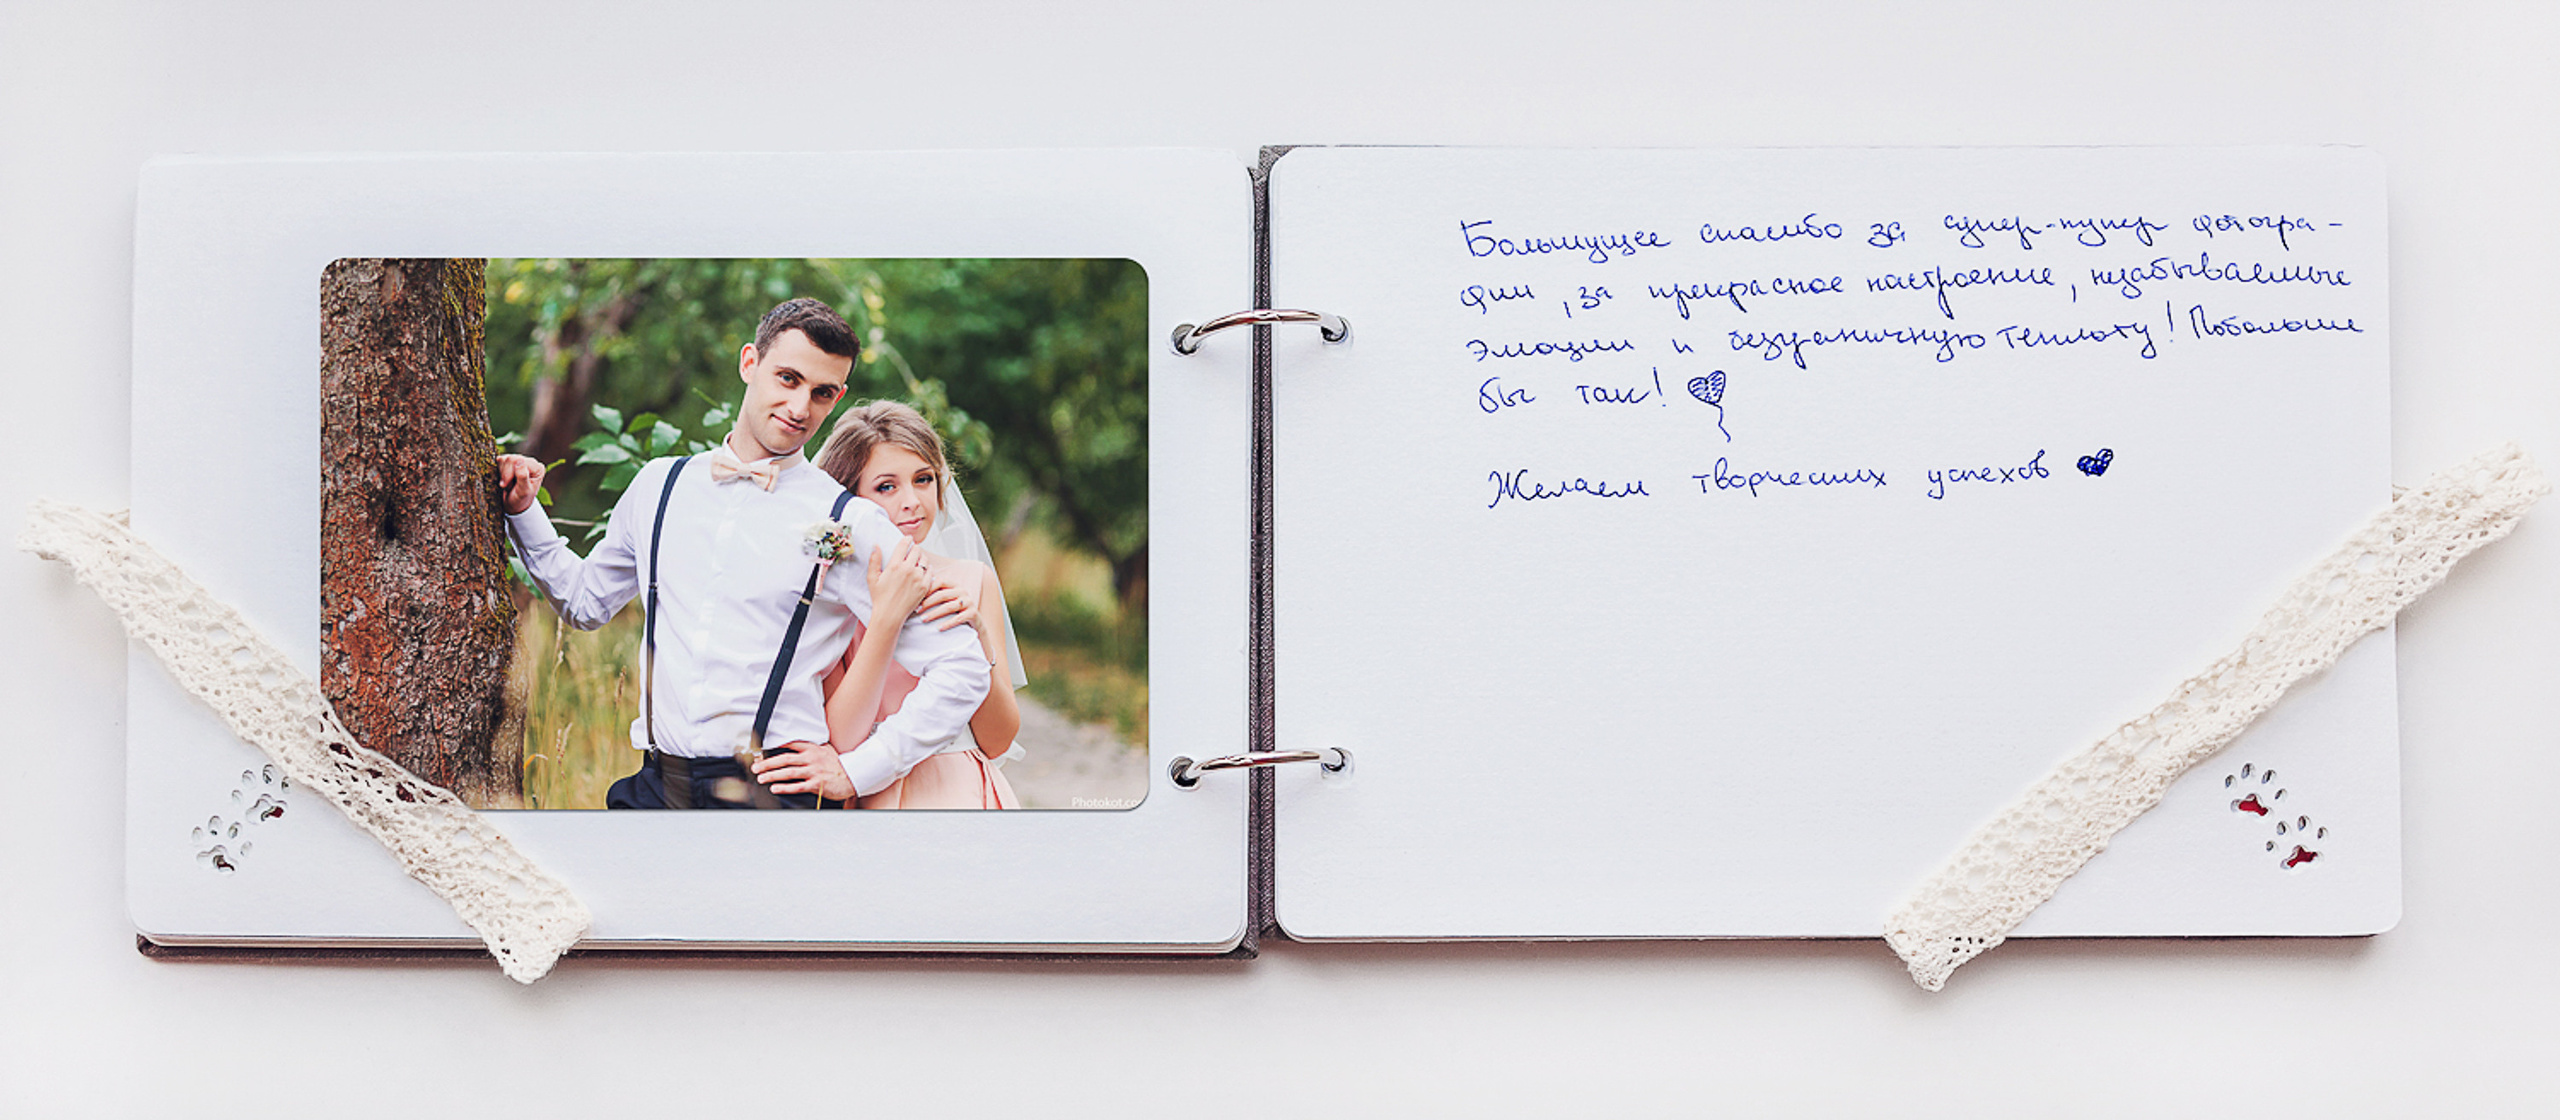 Photokot.co
Большущее спасибо за супер-пупер фотогра-
фии, за прекрасное настроение, незабываемые
эмоции и безграничную теплоту! Побольше
бы так!
Желаем творческих успехов